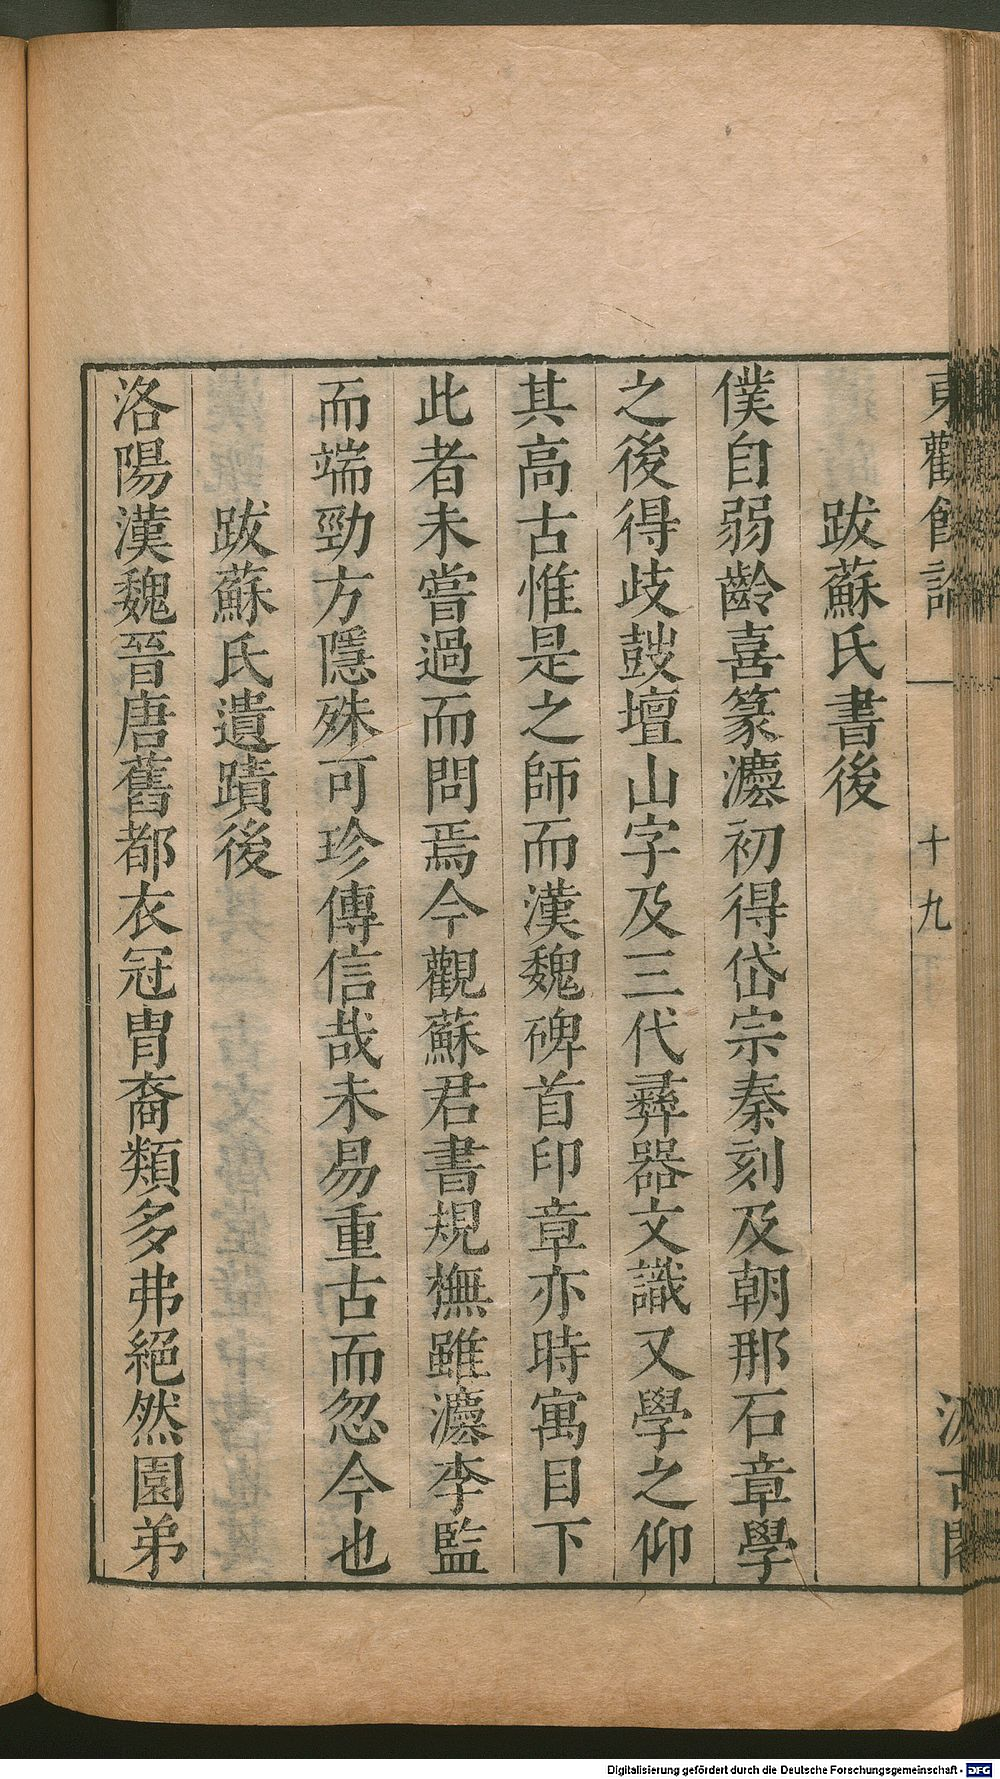 東觀餘論
十九
汲古閣
跋蘇氏書後
僕自弱齡喜篆灋初得岱宗秦刻及朝那石章學
之後得歧鼓壇山字及三代彞器文識又學之仰
其高古惟是之師而漢魏碑首印章亦時寓目下
此者未嘗過而問焉今觀蘇君書規橅雖灋李監
而端勁方隱殊可珍傳信哉未易重古而忽今也
跋蘇氏遺蹟後
洛陽漢魏晉唐舊都衣冠胄裔類多弗絕然園弟
Digitalisierung gefördert durch die Deutsche Forschungsgemeinschaft - DFG